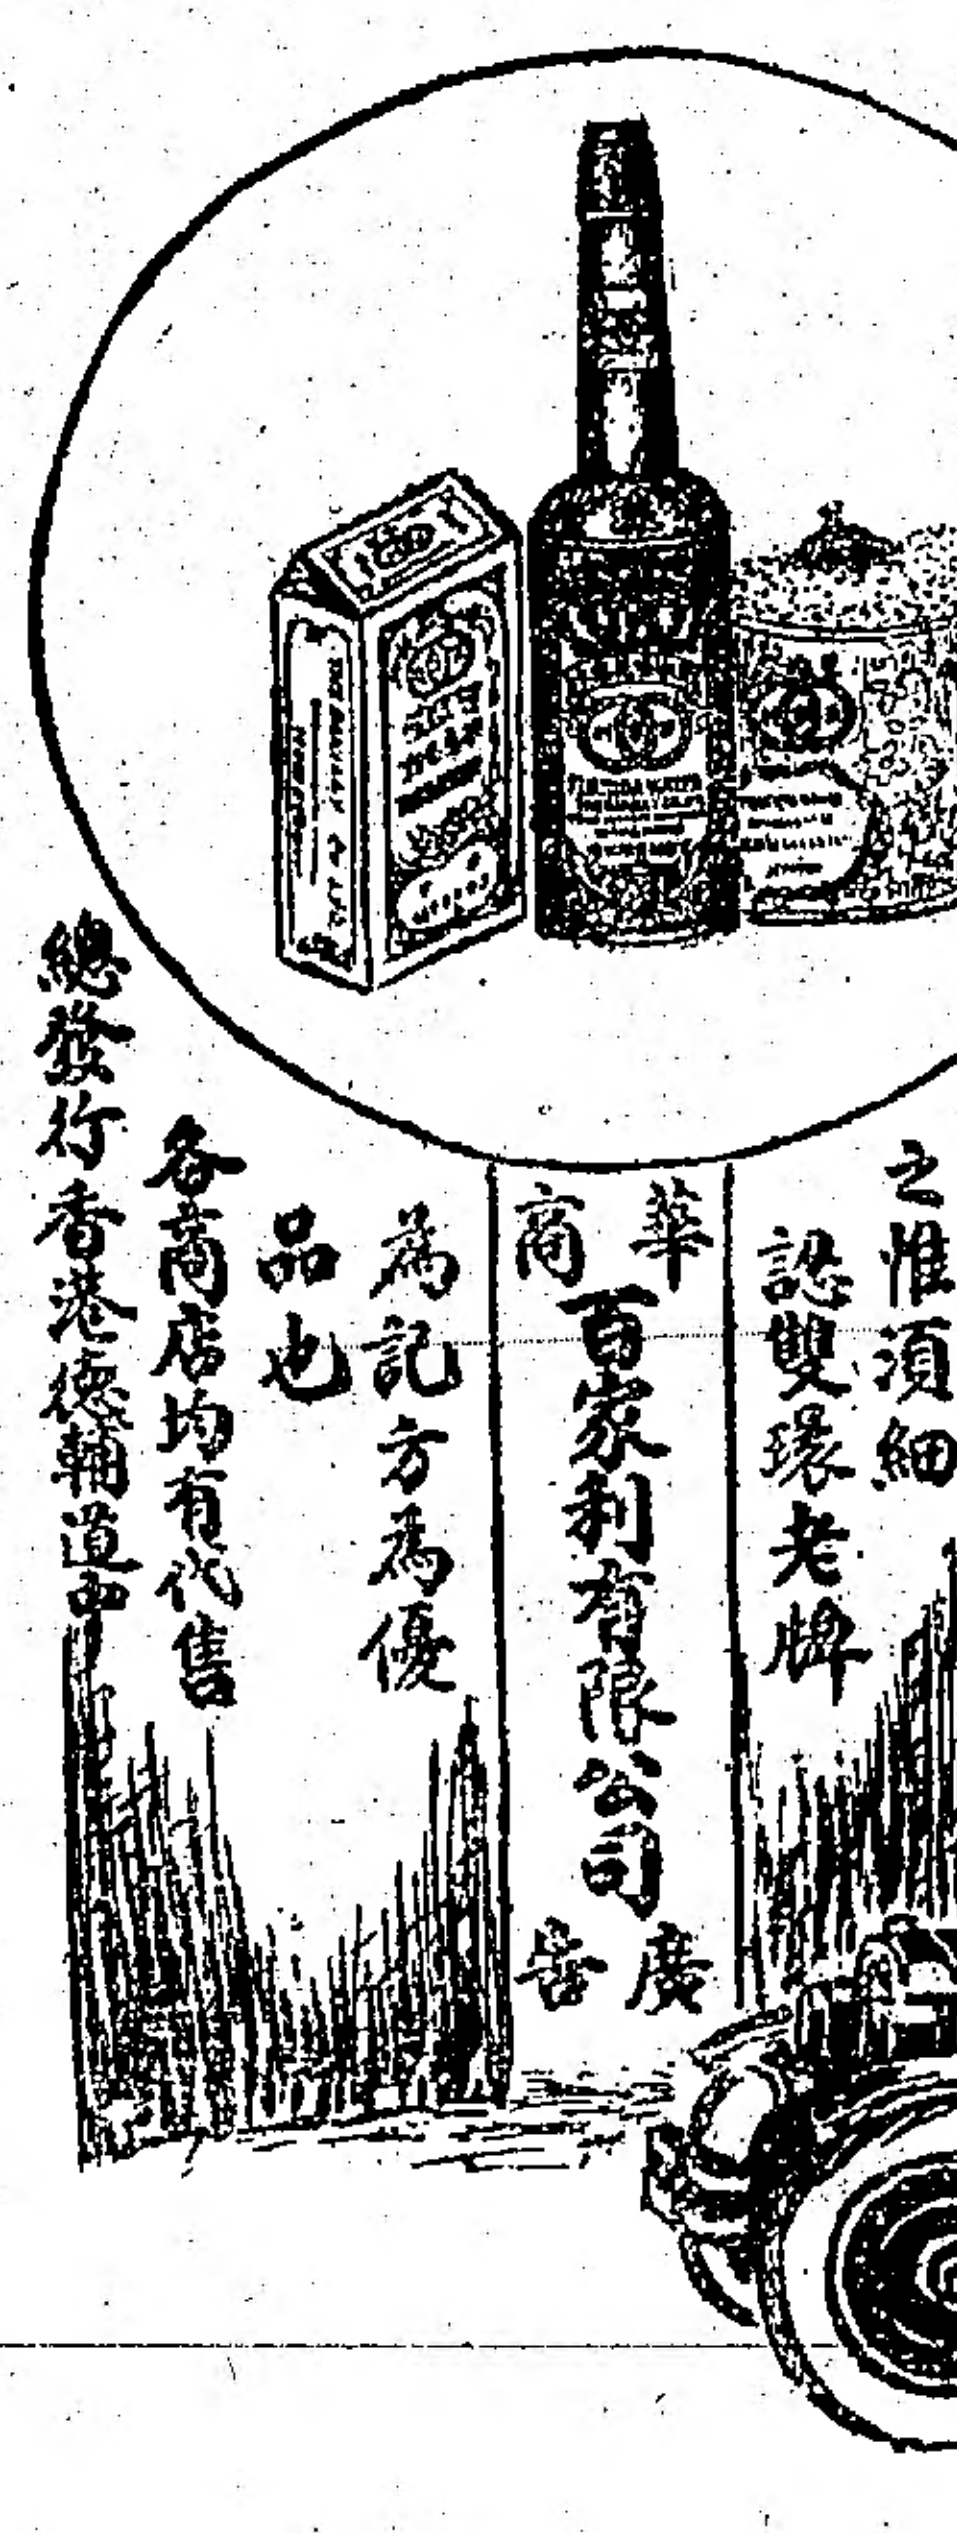 之惟須細
認雙環老牌
華商
百家利有限公司
廣告
為記方為優
品也
各商店均有代售
總發行香港德輔道中